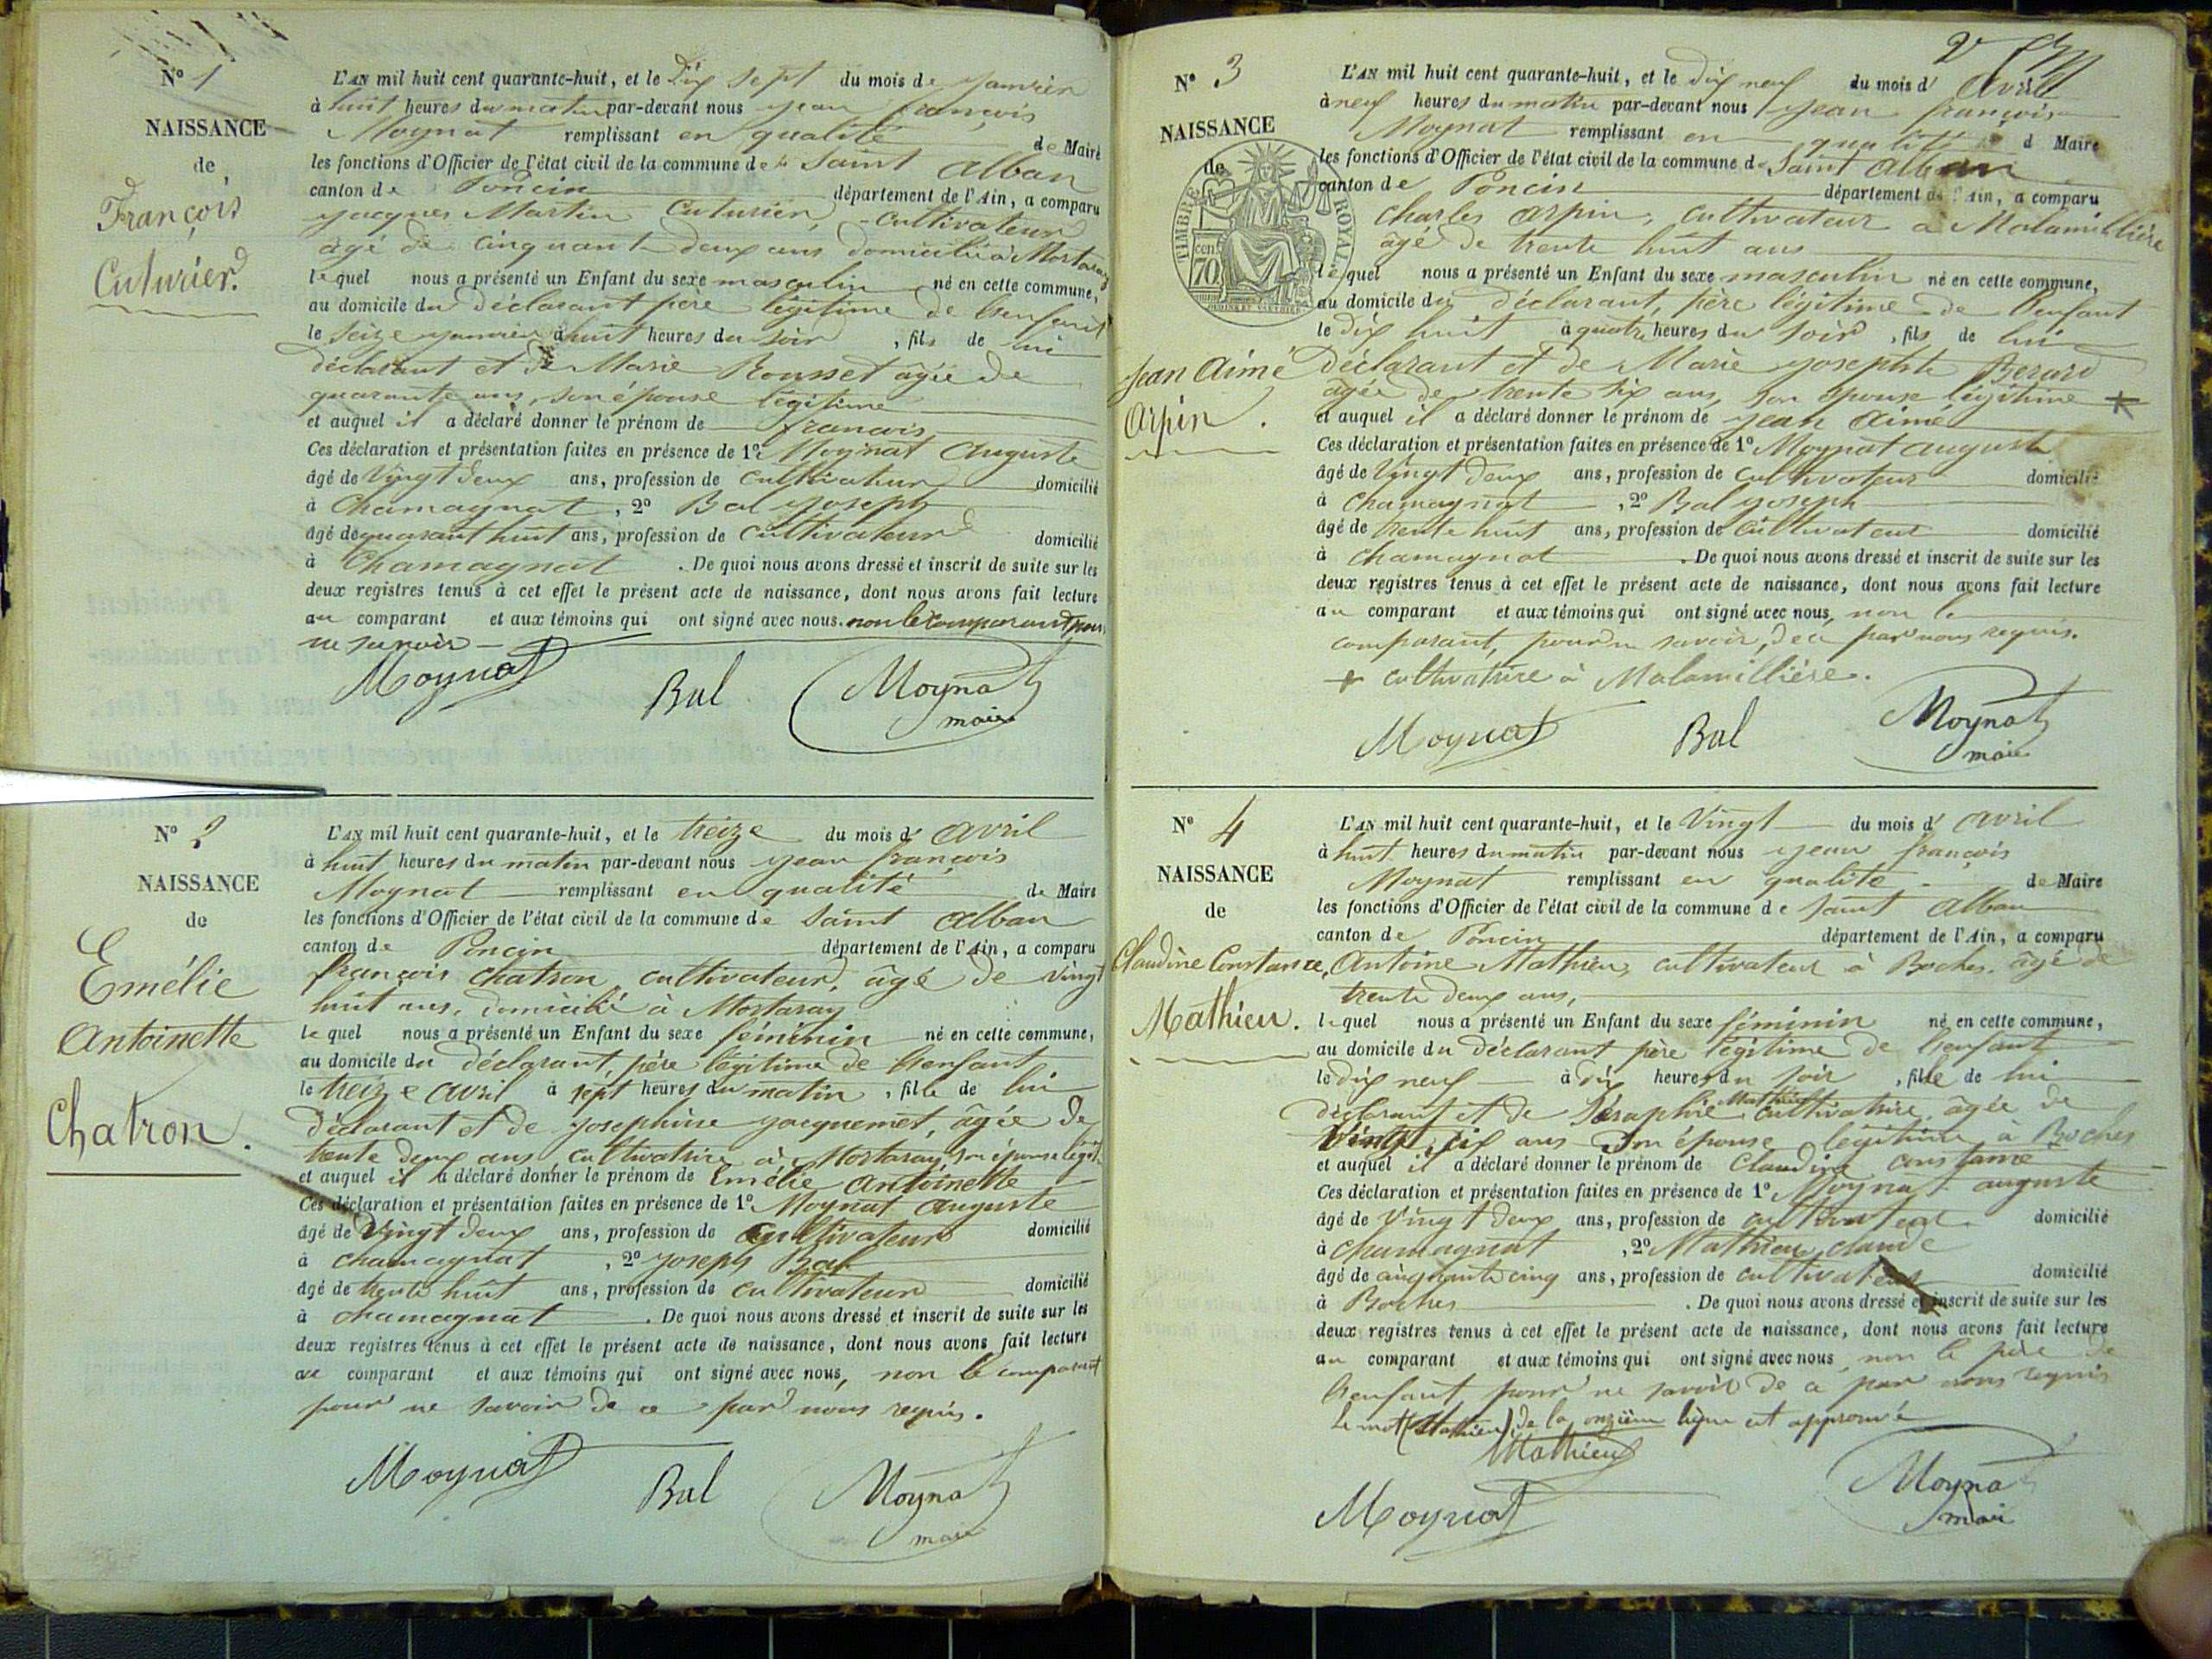 N° 1
NAISSANCE
de
François
Cuturier.
L'AN mil huit cent quarante-huit, et le Dix sept du mois de janvier
à huit heures du matin par-devant nous jean françois
Moynat remplissant en qualité de Maire
les fonctions d'Officier de l'état civil de la commune de Saint Alban
canton de Poncin département de l'Ain, a comparu
jacques Martin Cuturier, cultivateur
âgé de cinquante deux ans domicilié à Mortaray
lequel nous a présenté un Enfant du sexe masculin né en cette commune,
au domicile du déclarant père légitime de l'enfant
le seize janvier à huit heures du soir, fils de lui
déclarant et de Marie Rousset âgée de
quarante ans, son épouse légitime
et auquel il a déclaré donner le prénom de françois
Ces déclaration et présentation faites en présence de 1° Moynat Auguste
âgé de Vingt deux ans, profession de cultivateur domicilié
à Chamagnat, 2° Bal joseph
âgé de quarant huit ans, profession de cultivateur domicilié
à Chamagnat. De quoi nous avons dressé et inscrit de suite sur les
deux registres tenus à cet effet le présent acte de naissance, dont nous avons fait lecture
au comparant et aux témoins qui ont signé avec nous. non le comparant pour
ne savoir
Moynat Bal Moynat
maire
N° 2
NAISSANCE
de
Emélie
Antoinette
Chatron.
L'AN mil huit cent quarante-huit, et le treize du mois d' avril
à huit heures du matin par-devant nous jean françois
Moynat remplissant en qualité de Maire
les fonctions d'Officier de l'état civil de la commune de Saint Alban
canton de Poncin département de l'Ain, a comparu
françois chatron cultivateur, âgé de vingt
huit ans, domicilié à Mortaray
lequel nous a présenté un Enfant du sexe féminin né en cette commune,
au domicile du déclarant, père légitime de l'enfant
le treize avril à sept heures du matin, fille de lui
déclarant et de josephine jacquemet, âgée de
trente deux ans cultivatrice à Mortaray son épouse légitime
et auquel il a déclaré donner le prénom de Emélie Antoinette
Ces déclaration et présentation faites en présence de 1° Moynat Auguste
âgé de Vingt deux ans, profession de cultivateur domicilié
à chamagnat, 2° joseph Bal
âgé de trente huit ans, profession de cultivateur domicilié
à chamagnat. De quoi nous avons dressé et inscrit de suite sur les
deux registres tenus à cet effet le présent acte de naissance, dont nous avons fait lecture
au comparant et aux témoins qui ont signé avec nous, non le comparant
pour ne savoir de ce par nous requis.
Moynat Bal Moynat
maire
2
N° 3
NAISSANCE
de
TIMBRE ROYAL
70 cen
Jean Aimé
Arpin.
L'AN mil huit cent quarante-huit, et le dix neuf du mois d' avril
à neuf heures du matin par-devant nous jean françois
Moynat remplissant en qualité d Maire
les fonctions d'Officier de l'état civil de la commune d Saint Alban
canton de Poncin département de l'Ain, a comparu
charles Arpin, cultivateur à Malamillière
âgé de trente huit ans
lequel nous a présenté un Enfant du sexe masculin né en cette commune,
au domicile du déclarant, père légitime de l'enfant
le dix huit à quatre heures du soir, fils de lui
déclarant et de Marie josephte Berard
âgée de trente six ans, son épouse légitime +
et auquel il a déclaré donner le prénom de jean Aimé
Ces déclaration et présentation faites en présence de 1° Moynat auguste
âgé de Vingt deux ans, profession de cultivateur domicilié
à Chamagnat, 2° Bal joseph
âgé de trente huit ans, profession de cultivateur domicilié
à chamagnat. De quoi nous avons dressé et inscrit de suite sur les
deux registres tenus à cet effet le présent acte de naissance, dont nous avons fait lecture
au comparant et aux témoins qui ont signé avec nous, non le
comparant, pour ne savoir, de ce par nous requis.
+ cultivatrice à Malamillière.
Moynat Bal Moynat
maire
N° 4
NAISSANCE
de
Claudine Constance,
Mathieu.
L'AN mil huit cent quarante-huit, et le Vingt du mois d' avril
à huit heures du matin par-devant nous jean françois
Moynat remplissant en qualité de Maire
les fonctions d'Officier de l'état civil de la commune de Saint Alban
canton de Poncin département de l'Ain, a comparu
Antoine Mathieu, cultivateur à Boches, âgé de
trente deux ans,
lequel nous a présenté un Enfant du sexe féminin né en cette commune,
au domicile du déclarant père légitime de l'enfant
le dix neuf à dix heures du soir, fille de lui
déclarant et de Séraphie Mathieu cultivatrice, âgée de
vingt six ans son épouse légitime à Boches
et auquel il a déclaré donner le prénom de Claudine constance
Ces déclaration et présentation faites en présence de 1° Moynat auguste
âgé de Vingt deux ans, profession de cultivateur domicilié
à chamagnat, 2° Mathieu claude
âgé de cinquante cinq ans, profession de cultivateur domicilié
à Boches. De quoi nous avons dressé et inscrit de suite sur les
deux registres tenus à cet effet le présent acte de naissance, dont nous avons fait lecture
au comparant et aux témoins qui ont signé avec nous, non le père de
l'enfant pour ne savoir de ce par nous requis
Le mot (Mathieu) de la onzième ligne est approuvé
Mathieu
Moynat Moynat
maire